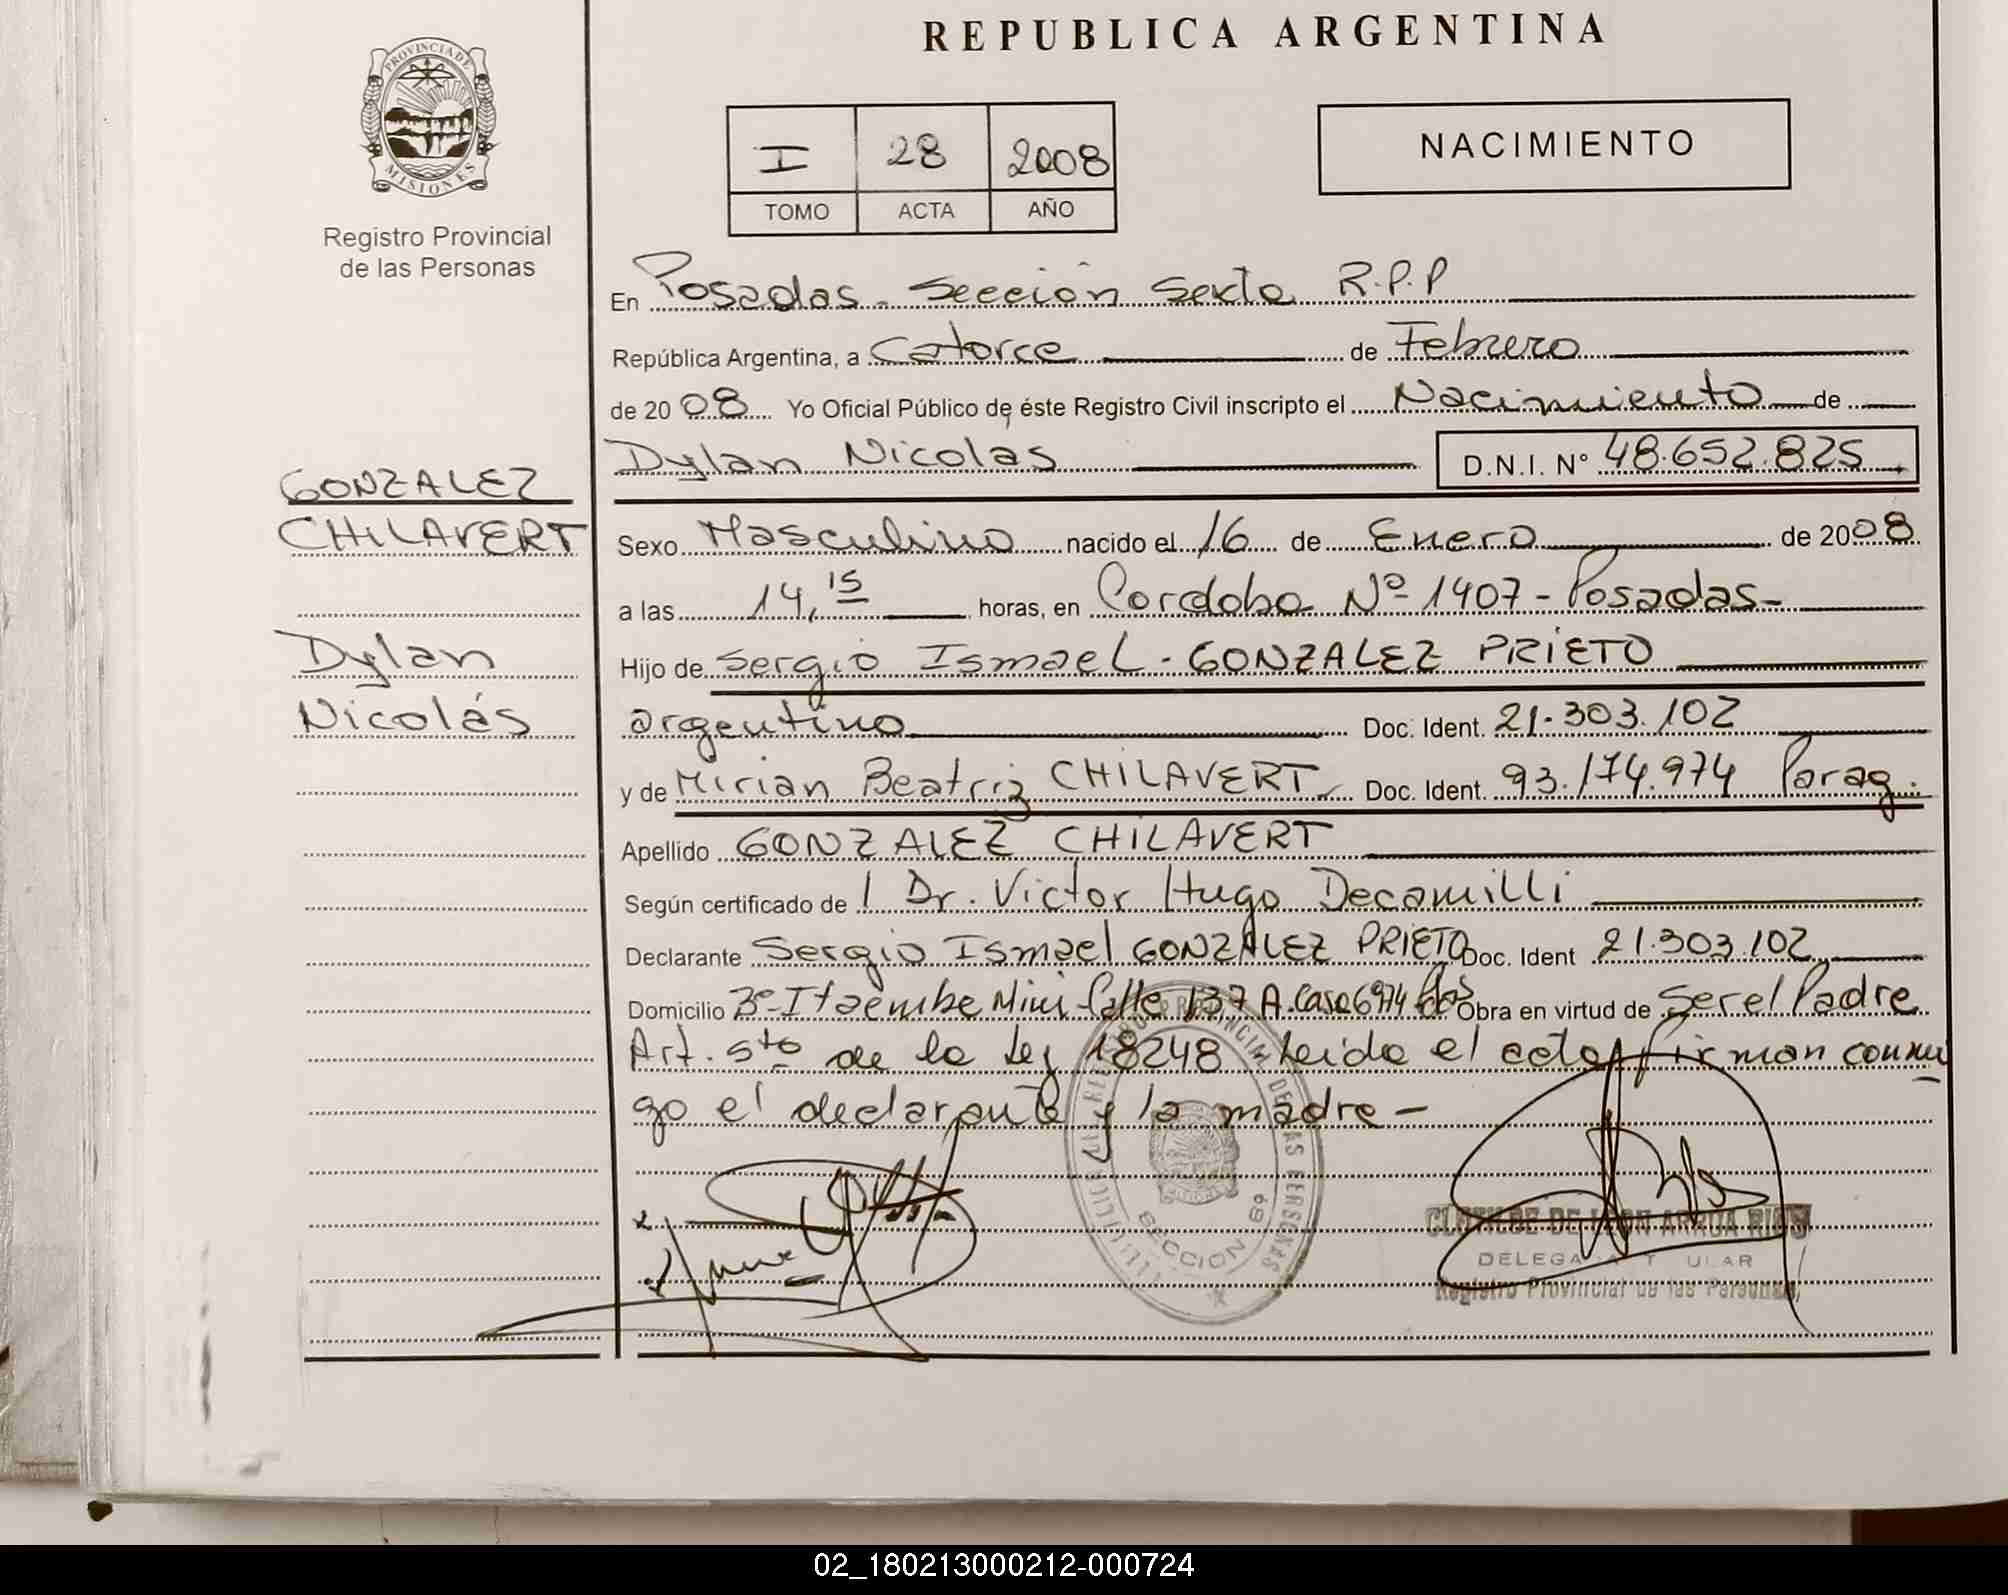 REPUBLICA ARGENTINA
PROVINCIA DE
MISIONES
Registro Provincial
de las Personas
I 28 2008
TOMO ACTA AÑO
NACIMIENTO
En Posadas - Sección Sexta R.P.P
República Argentina, a Catorce de Febrero
de 2008 Yo Oficial Público de éste Registro Civil inscripto el Nacimiento de
Dylan Nicolas D.N.I. N° 48.652.825
GONZALEZ
CHILAVERT
Dylan
Nicolás
Sexo Masculino nacido el 16 de Enero de 2008
a las 14,15 horas, en Cordoba Nº 1407 - Posadas -
Hijo de Sergio Ismael - GONZALEZ PRIETO
argentino Doc. Ident. 21.303.102
y de Mirian Beatriz CHILAVERT Doc. Ident. 93.174.974 Parag.
Apellido GONZALEZ CHILAVERT
Según certificado de / Dr. Victor Hugo Decamilli
Declarante Sergio Ismael GONZALEZ PRIETO Doc. Ident 21.303.102
Domicilio Itaembe Mini Calle 137 A. Casa 6974 Pdas Obra en virtud de Ser el Padre
Art. 5to de la Ley 18248 Leida el acta firman conmi
go el declarante y la madre -
REGISTRO PROVINCIAL DE LAS PERSONAS
SECCION 69
CLOTILDE DE LEON ARRUA RIOS
DELEGADA TITULAR
Registro Provincial de las Personas
02_180213000212-000724